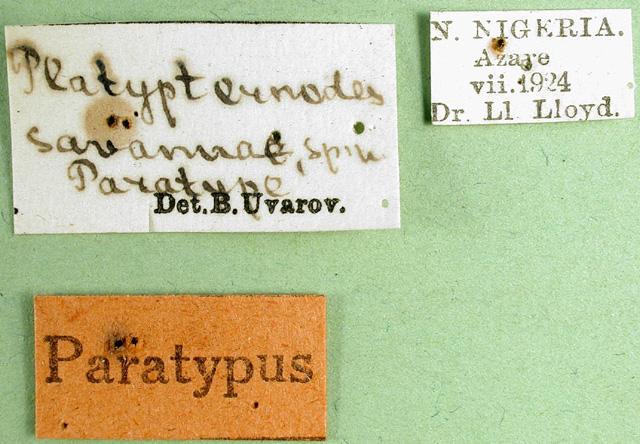 Platypternodes
savannae, sp.n.
Paratype,
Det. B. Uvarov.
N. NIGERIA.
Azare
vii.1924
Dr. Ll Lloyd.
Paratypus